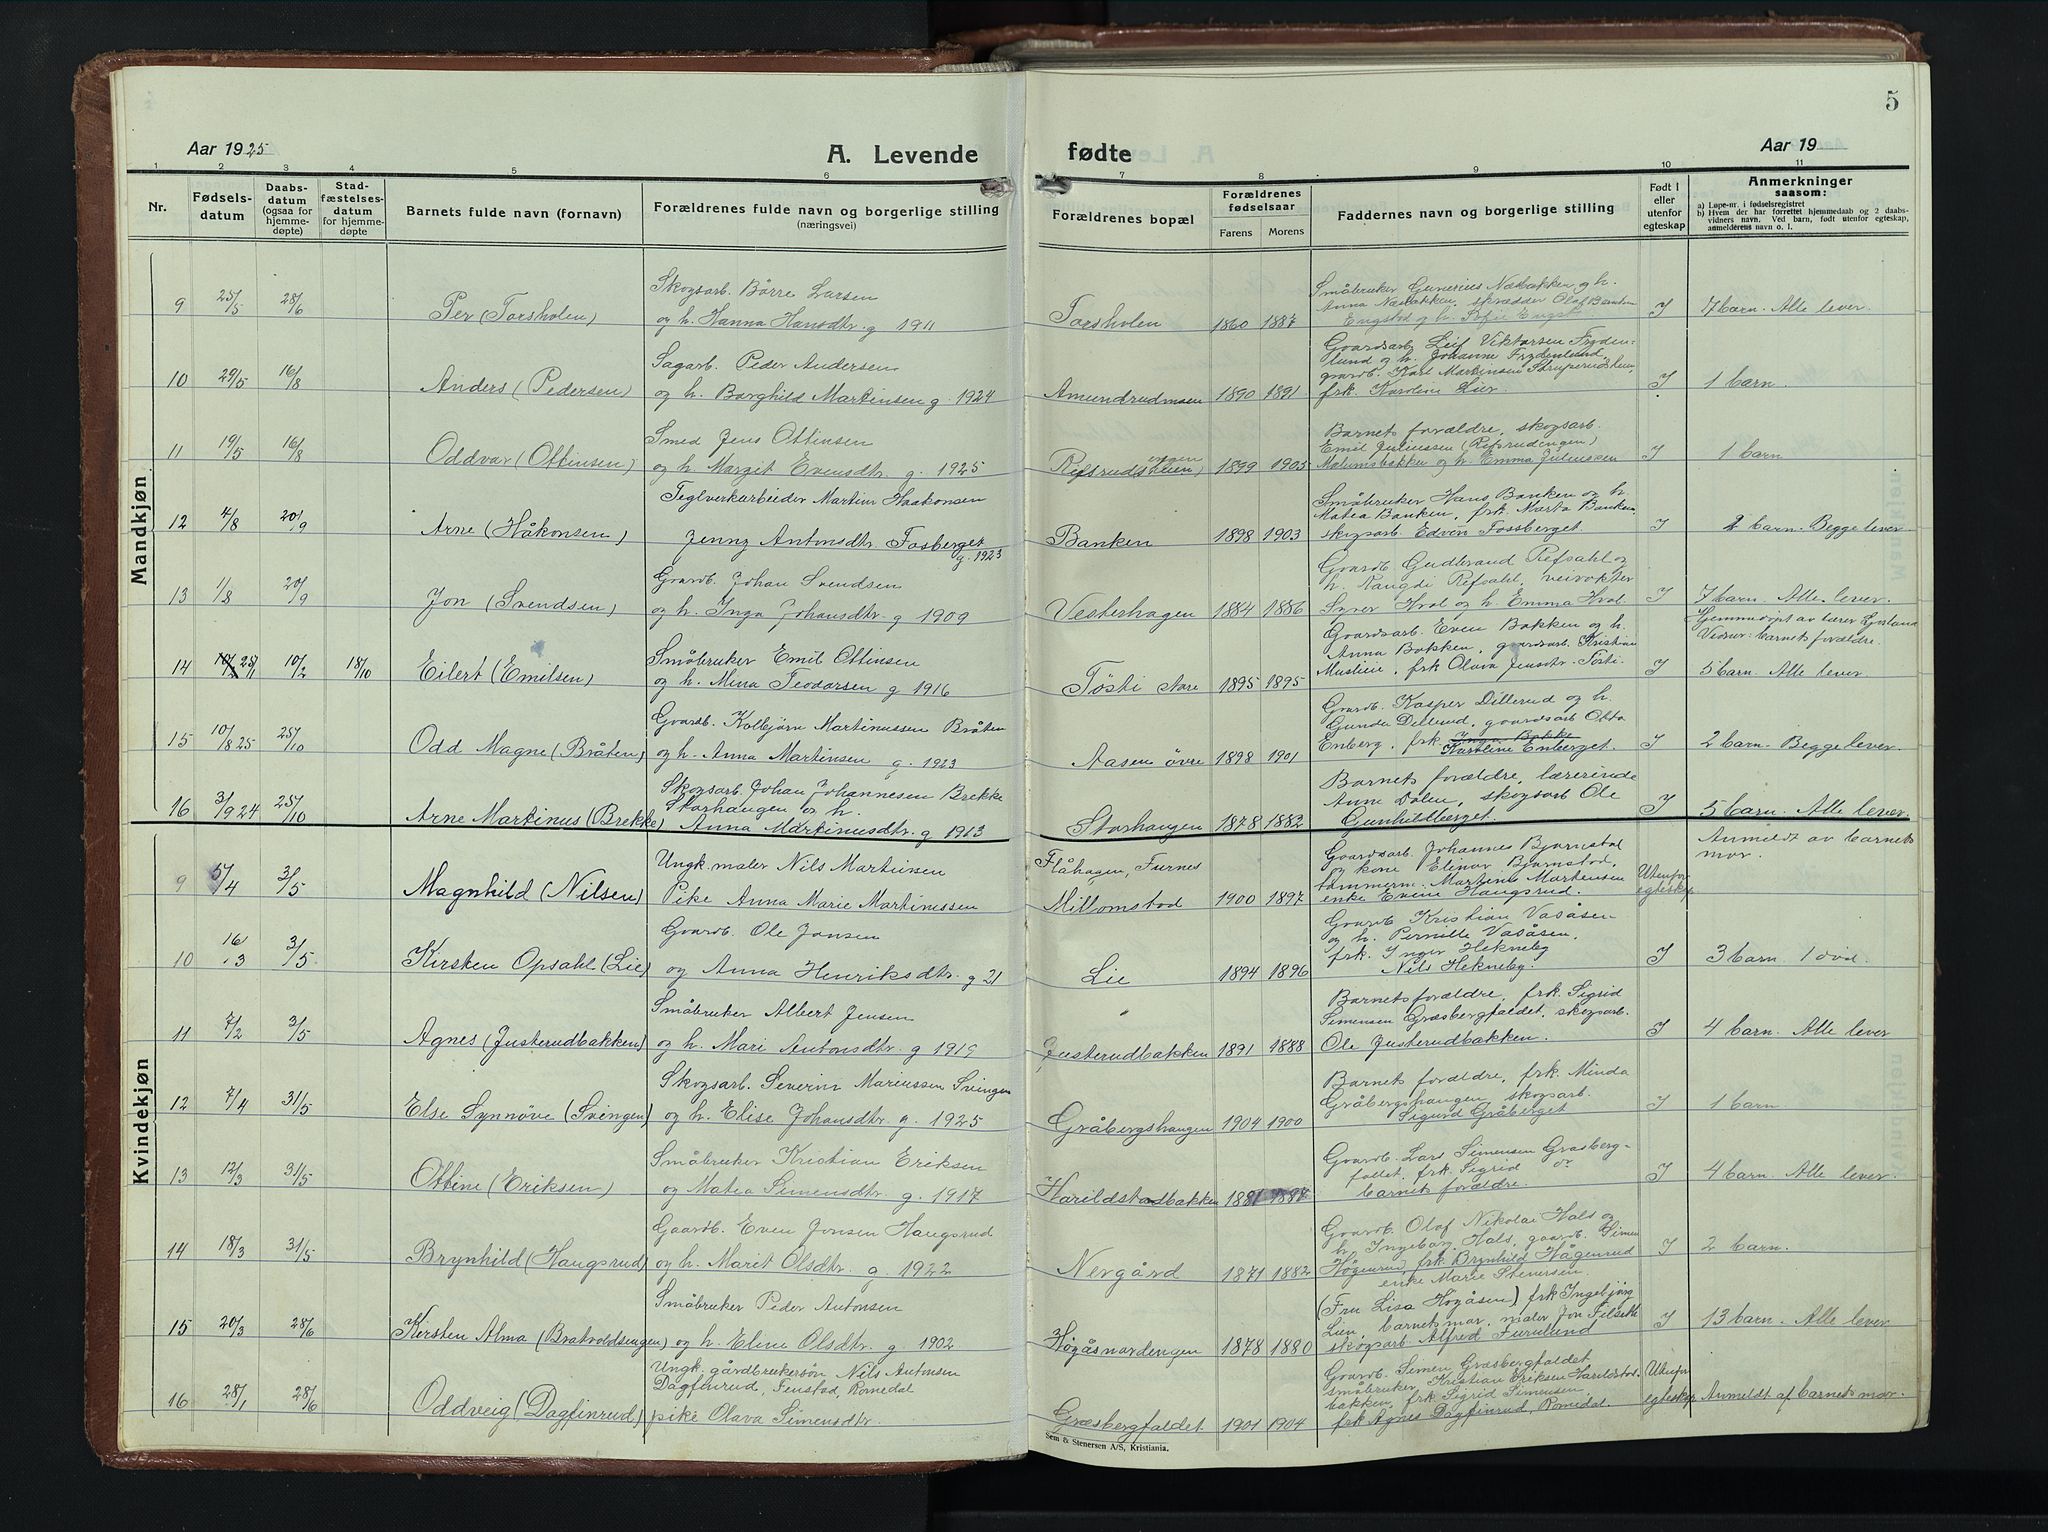 5
Aar 1925
A. Levende
fødte
Aar 19
1 2 3 4 5 6 7 8 9 10 11
Nr.
Fødsels-
datum
Daabs-
datum
(ogsaa for
hjemme-
døpte)
Stad-
fæstelses-
datum
for hjemme-
døpte
Barnets fulde navn (fornavn)
Forældrenes fulde navn og borgerlige stilling
(næringsvei)
Forældrenes bopæl
Forældrenes
fødselsaar
Farens Morens
Faddernes navn og borgerlige stilling
Født i
eller
utenfor
egteskap
Anmerkninger
saasom:
a) Løpe-nr. i fødselsregistret
b) Hvem der har forrettet hjemmedaab og 2 daabs-
vidners navn. Ved barn, født utenfor egteskap,
anmelderens navn o. l.
Mandkjøn
Skogsarb. Børre Larsen
Småbruker Gunerius Næbakken og h.
Anna Næbakken, Olaf
9 25/5 28/6 Per (Torsholen) og h. Hanna Hansdtr. g 1911 Torsholen 1860 1887 Engstad og h. Sofie Engst. I 7 barn. Alle lever.
Sagarb. Peder Andersen
Gaardsarb. Leif Viktorsen Fryden-
lund og h. Johanne Frydenlund,
gaardb. Karl Martinsen
10 29/5 16/8 Anders (Pedersen) og h. Borghild Martinsen g. 1924 Amundrudmoen 1890 1891 frk. Karoline Lier. I 1 barn.
Smed Jens Ottinsen
Barnets forældre, skogsarb.
Emil Juliussen (Refsrudengen)
11 19/5 16/8 Oddvar (Ottinsen) og h. Margit Evensdtr. g. 1925 1899 1905 Malumsbakken og h. Emma Juliussen I 1 barn
Teglverkarbeider Martin Haakonsen
Småbruker Hans Banken og h.
Matea Banken, frk. Marta Banken,
12 4/8 20/9 Arne (Håkonsen) Jenny Antonsdtr. Fosberget Banken 1898 1903 skogsarb. Edvin Fossberget I 2 barn. Begge lever.
g. 1923
Gaardb. Johan Svendsen
Gaardb. Gudbrand Refsahl og
h. Refsahl, veivokter
13 1/8 20/9 Jon (Svendsen) og h. Inga Johansdtr. g 1909 Vesteshagen 1884 1886 Syver Hval og h. Emma Hval I 7 barn. Alle lever.
Gaardsarb. Even Bakken og h.
Hjemmedøpt av lærer
Småbruker Emil Ottinsen
Anna Bakken, gaardsarb. Kristian
barnets forældre.
14 25/1 10/2 18/10 Eilert (Emilsen) og h. Mina Teodorsen g 1916 Tøsti store 1895 1895 frk Olava Jensdtr. Tøsti. I 5 barn. Alle lever
Gaardb. Kolbjørn Martinussen Bråten
Gaardb. Kasper Dillerud og h.
Gunda Dillerud, gaardsarb Otto
15 10/8 25 25/10 Odd Magne (Bråten) og h. Anna Martinsen g. 1923 Aasen øvre 1898 1901 Enberg, frk. Inga Bakke Karoline Enberget. I 2 barn. Begge lever.
Skogsarb. Johan Johannesen Brekke
Storhaugen og h.
Barnets forældre, lærerinde
Anne Dolen, skogsarb Ole
16 3/9 24 25/10 Arne Martinus (Brekke) Anna Martinusdtr. g 1913 Storhaugen 1878 1882 Gunhildberget. I 5 barn. Alle lever.
Kvindekjøn
Ungk. maler Nils Martinsen
Flåhagen, Furnes
Gaardsarb. Johannes Bjørnstad
og kone Elinor Bjørnstad,
Martinsen
Anmeldt av barnets
mor.
9 5/4 3/5 Magnhild (Nilsen) Pike Anna Marie Martinussen Millomstad 1900 1897 enke Eveni Haugsrud. Utenfor egteskap
Gaardb. Ole Jansen
Gaardb. Kristian Vasåsen
og h. Pernille Vasåsen,
frk. Inger Hekneby
10 16/3 3/5 Kirsten Opsahl (Lie) og Anna Henriksdtr. g 21 Lie 1894 1896 Nils Hekneby. I 3 barn. 1 død.
Småbruker Albert Jensen
Barnets forældre, frk. Sigrid
Simensen Græsbergfaldet, skogsarb.
11 7/2 3/5 Agnes (Justerudbakken) og h. Mari Antonsdtr. g 1919 Justerudbakken 1891 1888 Ole Justerudbakken. I 4 barn. Alle lever
Skogsarb. Severin Mariussen Svingen
Barnets forældre, frk. Minda
Gråbergshaugen, skogsarb.
12 7/4 31/5 Else Synnøve (Svingen) og h. Elise Johansdtr. g. 1925 Gråbergshaugen 1904 1900 Sigurd Gråberget I 1 barn
Småbruker Kristian Eriksen
Gaardb. Lars Simensen Græsberg-
faldet, frk. Sigrid
13 12/3 31/5 Ottine (Eriksen) og Matea Simensdtr. g. 1917 Harildstadbakken 1881 1887 barnets forældre. I 4 barn. Alle lever.
Gaardb. Even Jonsen Haugsrud
Gaardb. Olaf Nikolai Hals og
h. Ingeborg Hals, gaardb. Simen
14 18/3 31/5 Brynhild (Haugsrud) og h. Marit Olsdtr. g. 1922 Nergård 1871 1882 Høgenrud, frk. Brynhild Hågenrud I 2 barn.
enke Marie Stenersen.
Småbruker Peder Antonsen
(Fru Lisa Høgåsen) frk Ingebjørg
Lien, barnets mor, maler Jon Filseth
15 20/3 28/6 Kirsten Alma (Bratvoldsengen) og h. Eline Olsdtr. g 1902 Høgåsnordengen 1878 1880 skogsarb. Alfred Furulund I 13 barn. Alle lever.
Ungk. gårdbrukersøn Nils Antonsen
Dagfinrud, Fenstad, Romedal
Gaardb. Simen Græsbergfaldet,
småbruker Kristian Eriksen Harildstad-
bakken, frk Sigrid Simensen,
16 28/1 28/6 Oddveig (Dagfinrud) pike Olava Simensdtr. Græsbergfaldet 1901 1904 frk Agnes Dagfinrud, Romedal. Utenfor egteskap Anmeldt af barnets mor.
Sem & Stenersen A/S, Kristiania.